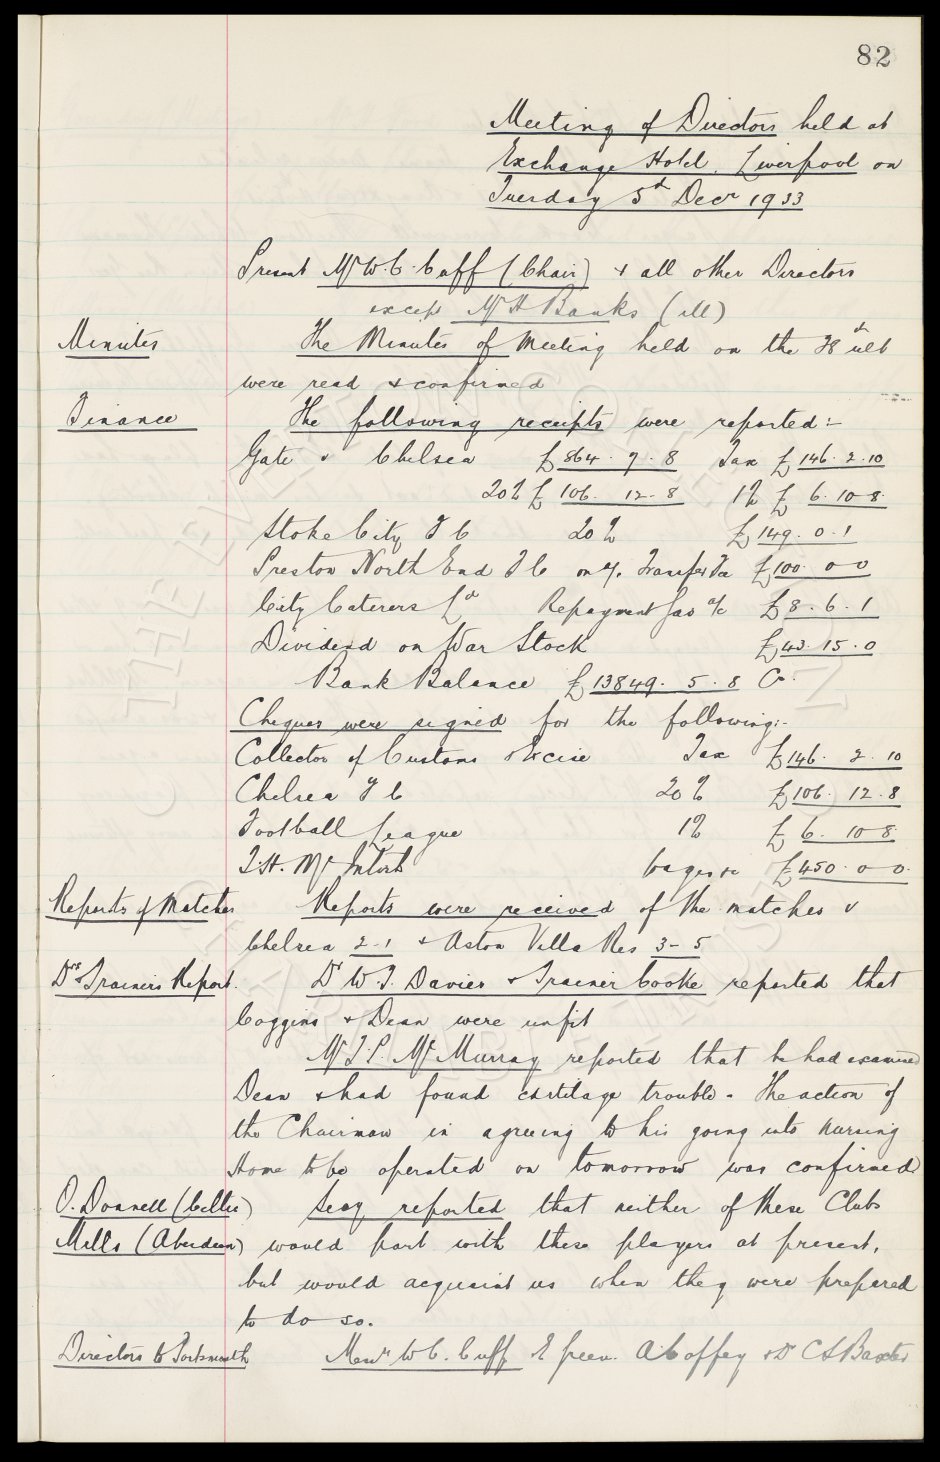 82
Meeting of Directors held at
Exchange Hotel, Liverpool on
Tuesday 5th Decr 1933
Present Mr W. C. Cuff (Chair) & all other Directors
except Mr H Banks (ill)
Minutes The Minutes of Meeting held on the 28th ult
were read & confirmed
Finance The following receipts were reported:-
Gate v Chelsea £864. 7. 8 Tax £146. 2. 10
20% £106. 12. 8 1% £6. 10 8.
Stoke City F C 20% £149. 0. 1
Preston North End F C on a/c Transfer Fee £100. 0 0
City Caterers Ld Repayment Gas a/c £8. 6. 1
Dividend on War Stock £43. 15. 0
Bank Balance £13849. 5. 8 Cr.
Cheques were signed for the following:-
Collector of Customs & Excise Tax £146. 2. 10
Chelsea F C 20% £106. 12. 8
Football League 1% £6. 10 8
T. H. McIntosh Wages &c £450. 0 0.
Reports of Matches Reports were received of the matches v
Chelsea 2-1 & Aston Villa Res 3-5
Drs & Trainers Report. Dr W. J. Davies & Trainer Cooke reported that
Coggins & Dean were unfit
Mr T. P. McMurray reported that he had examined
Dean & had found cartilage trouble. The action of
the Chairman in agreeing to his going into Nursing
Home to be operated on tomorrow was confirmed
O. Donnell (Celtic) Secy reported that neither of these Clubs
Mills (Aberdeen) would part with these players at present,
but would acquaint us when they were prepared
to do so.
Directors to Portsmouth Messrs W C. Cuff E Green. A Coffey & Dr C S Baxter